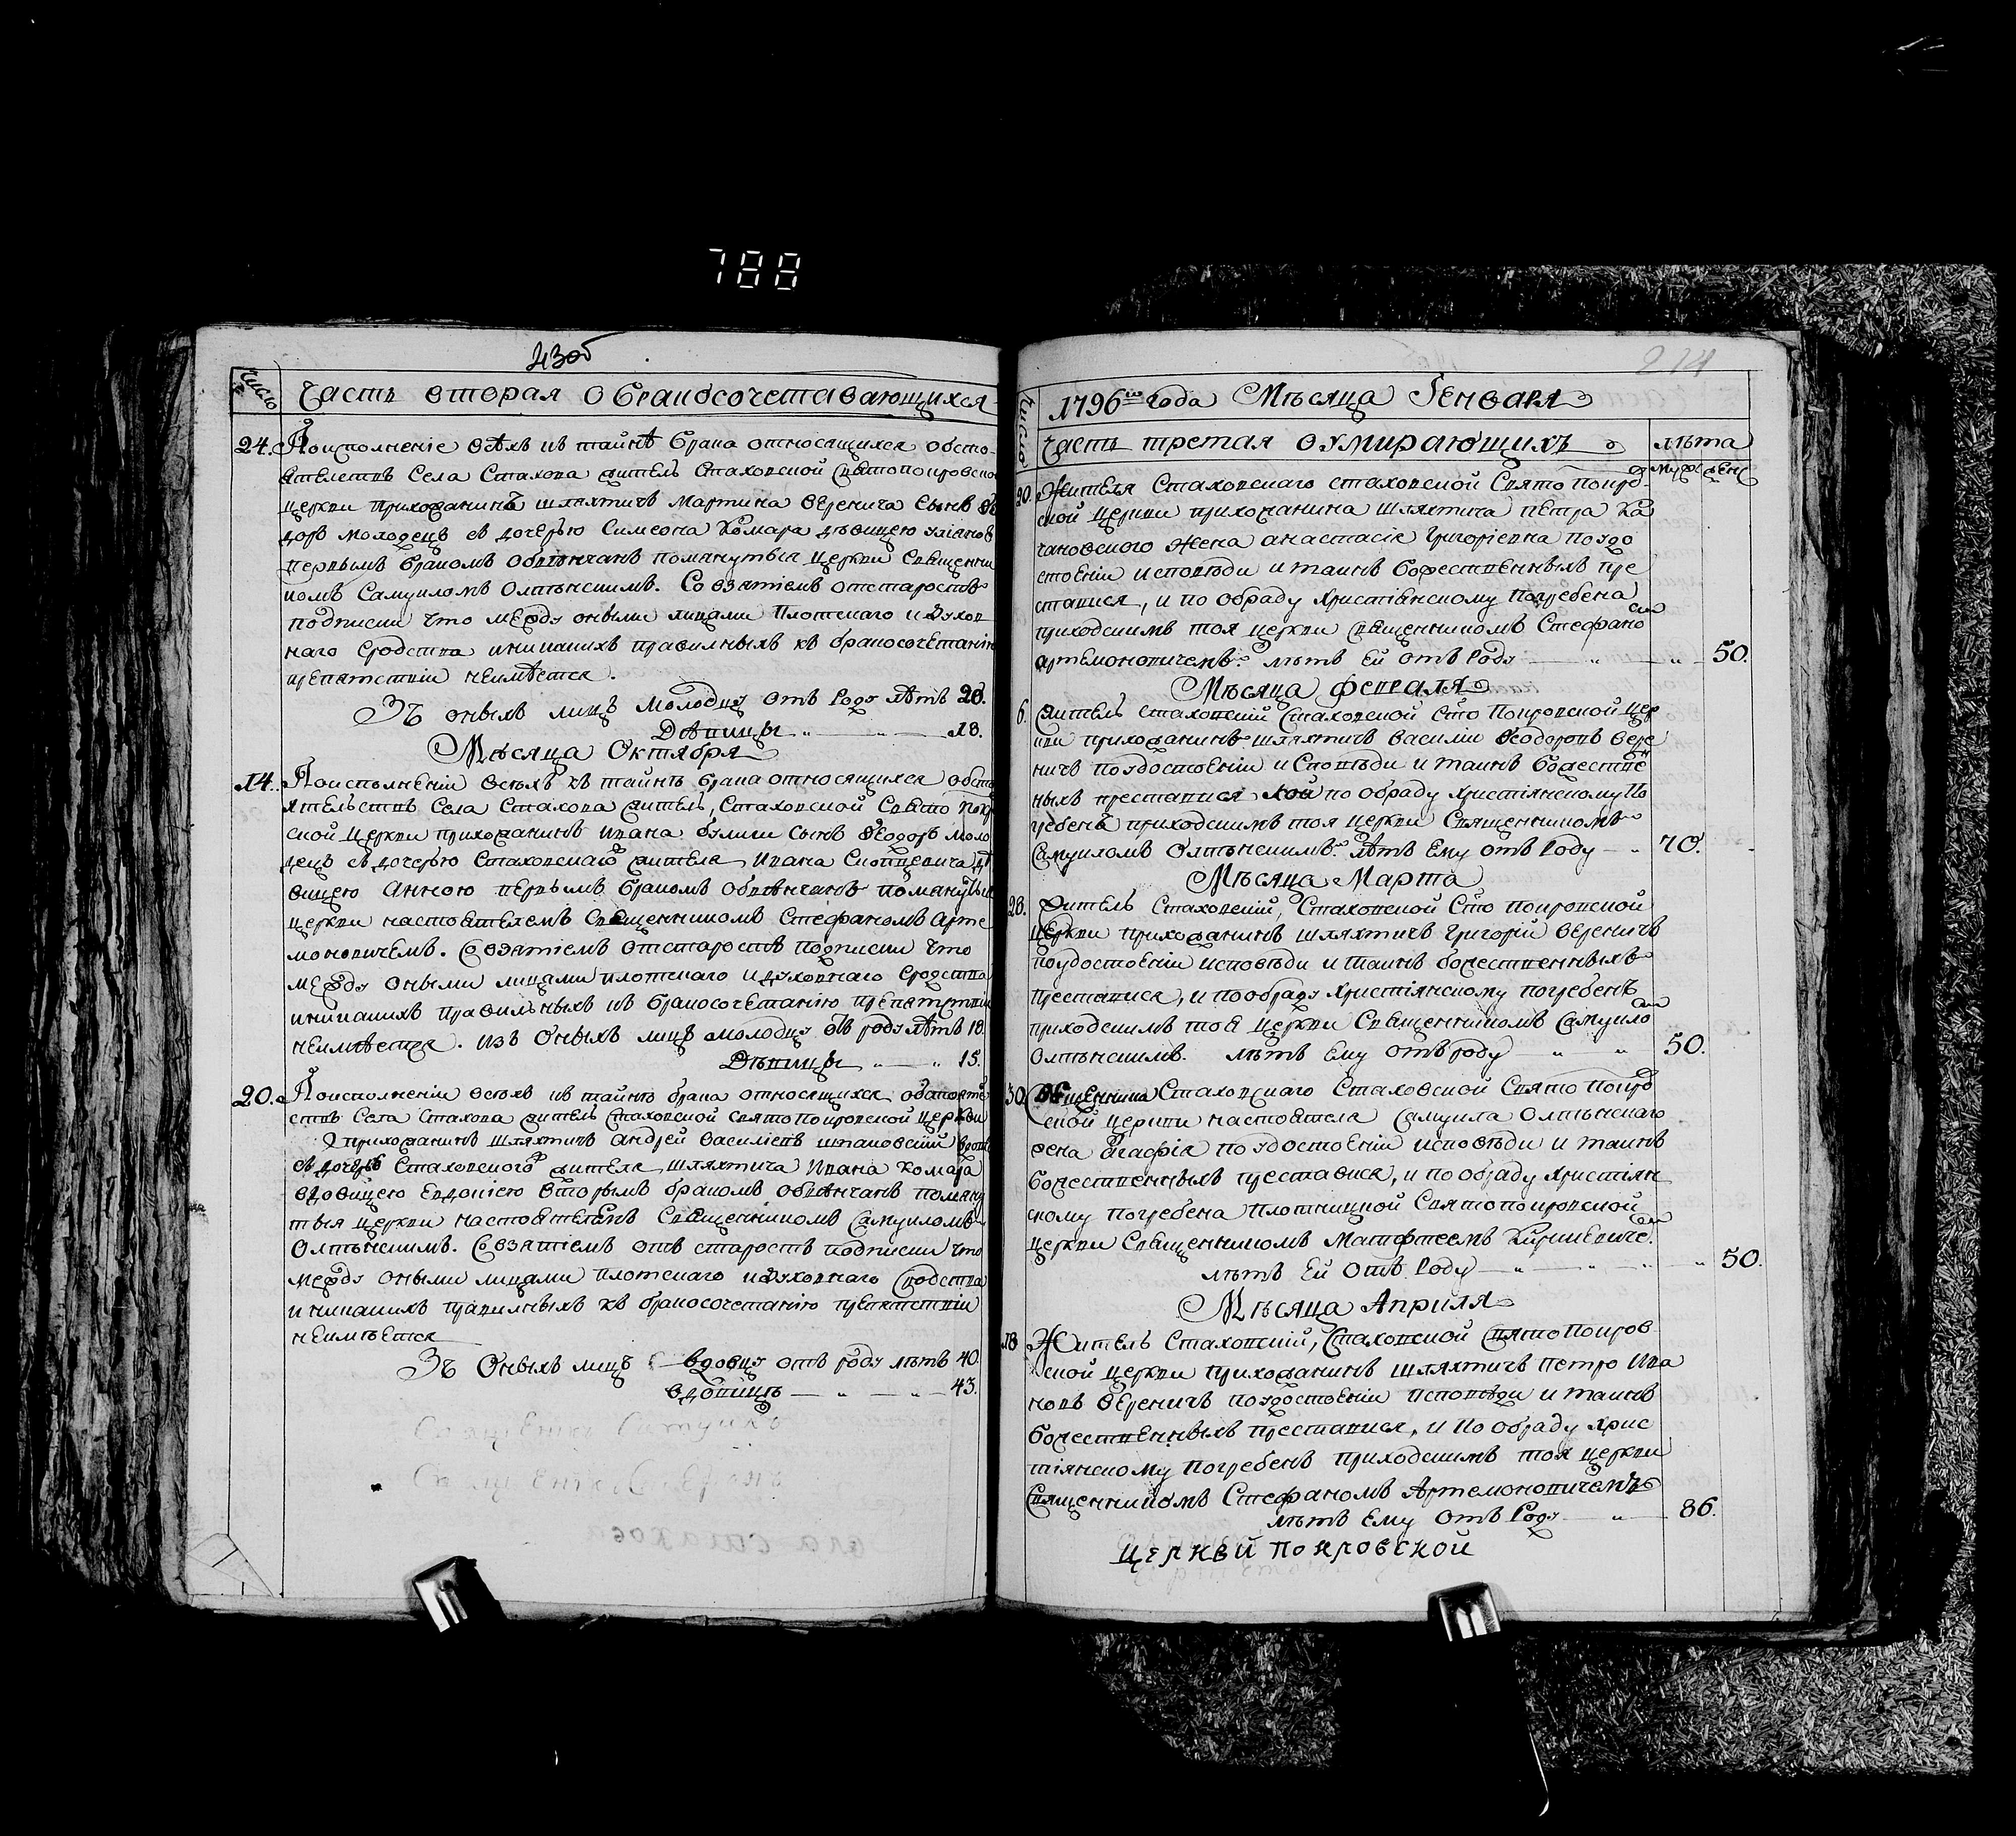 788
430б
Число
Часть вторая о бракосочетавающихся
24. По исполненіе всѣхъ къ тайнѣ брака относящихся обсто
ятелствъ Села Стахова житель Стаховской Святопокровско
церкви прихожанинъ шляхтичъ Мартина Веренича сынъ Ѳе
доръ молодецъ съ дочерью Симеона Комара дѣвицею
первымъ бракомъ обвѣнчанъ помянутыя церкви Священни
комъ Самуиломъ Олпѣнскимъ. Со взятіемъ отстаростъ
подписки что между оными лицами плотскаго и духов
наго сродства иникакихъ правилныхъ къ бракосочетанію
препятствіи неимѣется.
Зъ оныхъ лицъ молодцу отъ роду лѣтъ 20.
Дѣвицы „ — „ — 18.
Мѣсяца Октября
14. По исполненіи всѣхъ къ тайнѣ брака относящихся обсто
ятельствъ Села Стахова житель, Стаховской Свято покр
ской церкви прихожанинъ Ивана сынъ Ѳеодоръ моло
децъ съ дочерью Стаховскаго жителя Ивана дѣ
вицею Анною первымъ бракомъ обвѣнчанъ помянутыя
церкви настоятелемъ Священникомъ Стефаномъ Арте
моновичемъ. Со взятіемъ отстаростъ подписки что
между оными лицами плотскаго идуховнаго сродства
иникакихъ правильныхъ къ бракосочетанію препятствіи
неимѣется. изъ оныхъ лицъ молодцу отъ роду лѣтъ 18.
Дѣвицы „ — „ 15.
20. По исполненіи всѣхъ къ тайнѣ брака относящихся обстояте
ствъ Села Стахова житель Стаховской святопокровской церкви
прихожанинъ шляхтичъ Андрей Василіевъ вдов
съ дочерю Стаховского жителя шляхтича Ивана Комара
вдовицею Евдокіею вторымъ бракомъ обвѣнчанъ помяну
тыя церкви настоятелемъ Священникомъ Самуиломъ
Олпѣнскимъ. Со взятіемъ отъ старостъ подписки что
между оными лицами плотскаго идуховнаго сродства
и никакихъ правилныхъ къ бракосочетанію препятствіи
неимѣется
Зъ оныхъ лицъ вдовцу отъ роду лѣтъ 40.
вдовицѣ — „ — „ — 43.
214
Число
1796го года Мѣсяца Генваря
Часть третая о умирающихъ лѣта
муж жен
20. Жителя Стаховскаго стаховской Свято покро
ской церкви прихожанина шляхтича Петра Ка
чановского жена анастасія Григоріевна по удо
стоеніи исповѣди и таинъ божественныхъ пре
ставися, и по обряду христіянскому погребена
приходскимъ тоя церкви священникомъ Стефано
мъ
артемоновичемъ. лѣтъ ей отъ роду — „ — „ 50.
Мѣсяца февраля
6. житель стаховскій Стаховской сто Покровской цер
кви прихожанинъ шляхтичъ василіи Ѳеодоровъ вере
ничъ по удостоеніи исповѣди и таинъ божестве
ныхъ преставися и по обряду христіянскому по
гребенъ приходскимъ тоя церкви Священникомъ
Самуиломъ Олпѣнскимъ. лѣтъ ему отъ роду — „ 70.
Мѣсяца Марта
28. житель Стаховскій, Стаховской Сто покровской
церкви прихожанинъ шляхтичъ григорій вереничъ
поудостоеніи исповѣди и таинъ божественныхъ
преставися, и пообряду христіянскому погребенъ
приходскимъ тоя церкви Священникомъ Самуило
мъ
Олпѣнскимъ. лѣтъ ему отъ роду — „ — „ 50.
30. Священника Стаховскаго Стаховской Свято покро
ской церкви настоятеля Самуила олпѣнскаго
жена Агафія по удостоеніи исповѣди и таинъ
божественныхъ преставися, и по обряду христіян
скому погребена Плотницкой Святопокровской
церкви Священникомъ Матфеемъ
лѣтъ ей отъ роду — „ — „ — „ 50.
Мѣсяца Априля
18 Житель Стаховскій, Стаховской святопокров
ской церкви прихожанинъ шляхтичъ петро Ива
новъ вереничъ поудостоеніи исповѣди и таинъ
божественныхъ преставися, и по обряду хрис
тіянскому погребенъ приходскимъ тоя церкви
Священникомъ Стефаномъ Артемоновичемъ
лѣтъ ему отъ роду — „ — 86.
церкви покровской